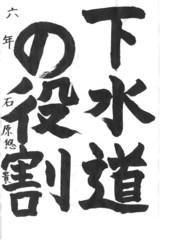 下水道
の役割
六年 石原悠貴